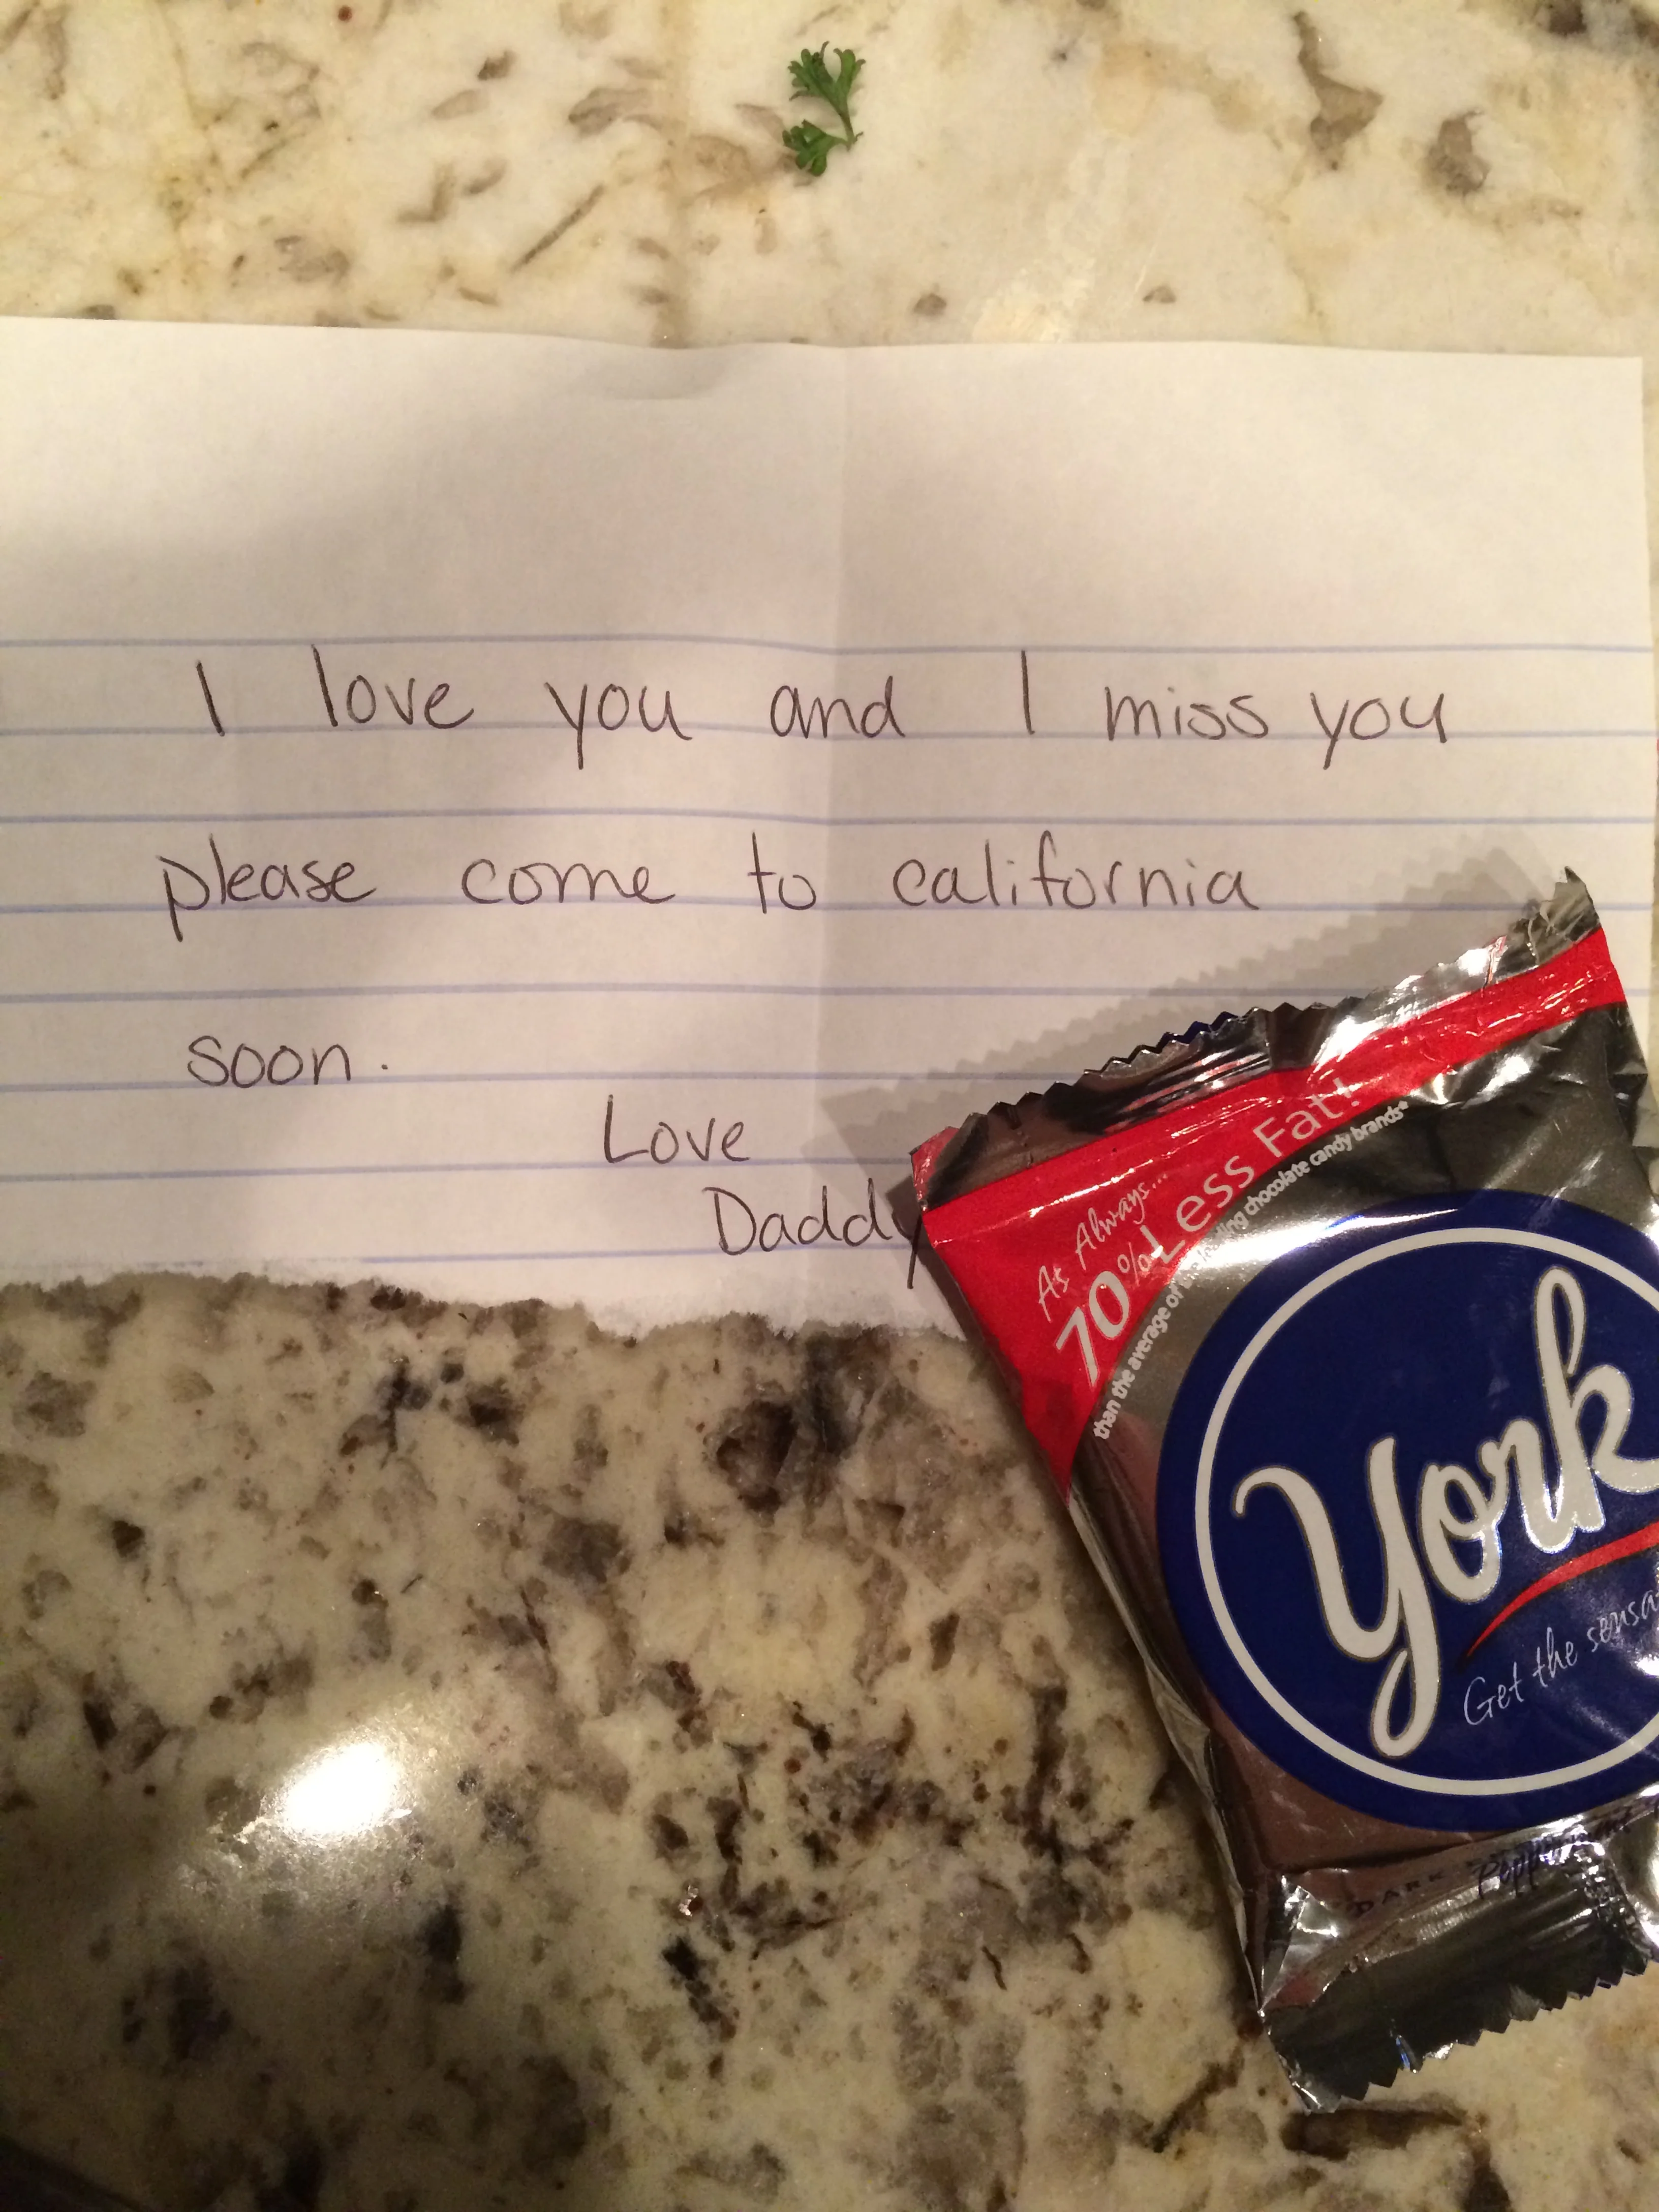 I love you and I miss you
please come to california
soon.
Love
Daddy
As Always...
70% Less Fat!
than the average of the leading chocolate candy brands*
York
Get the sensa
DARK
Peppermint